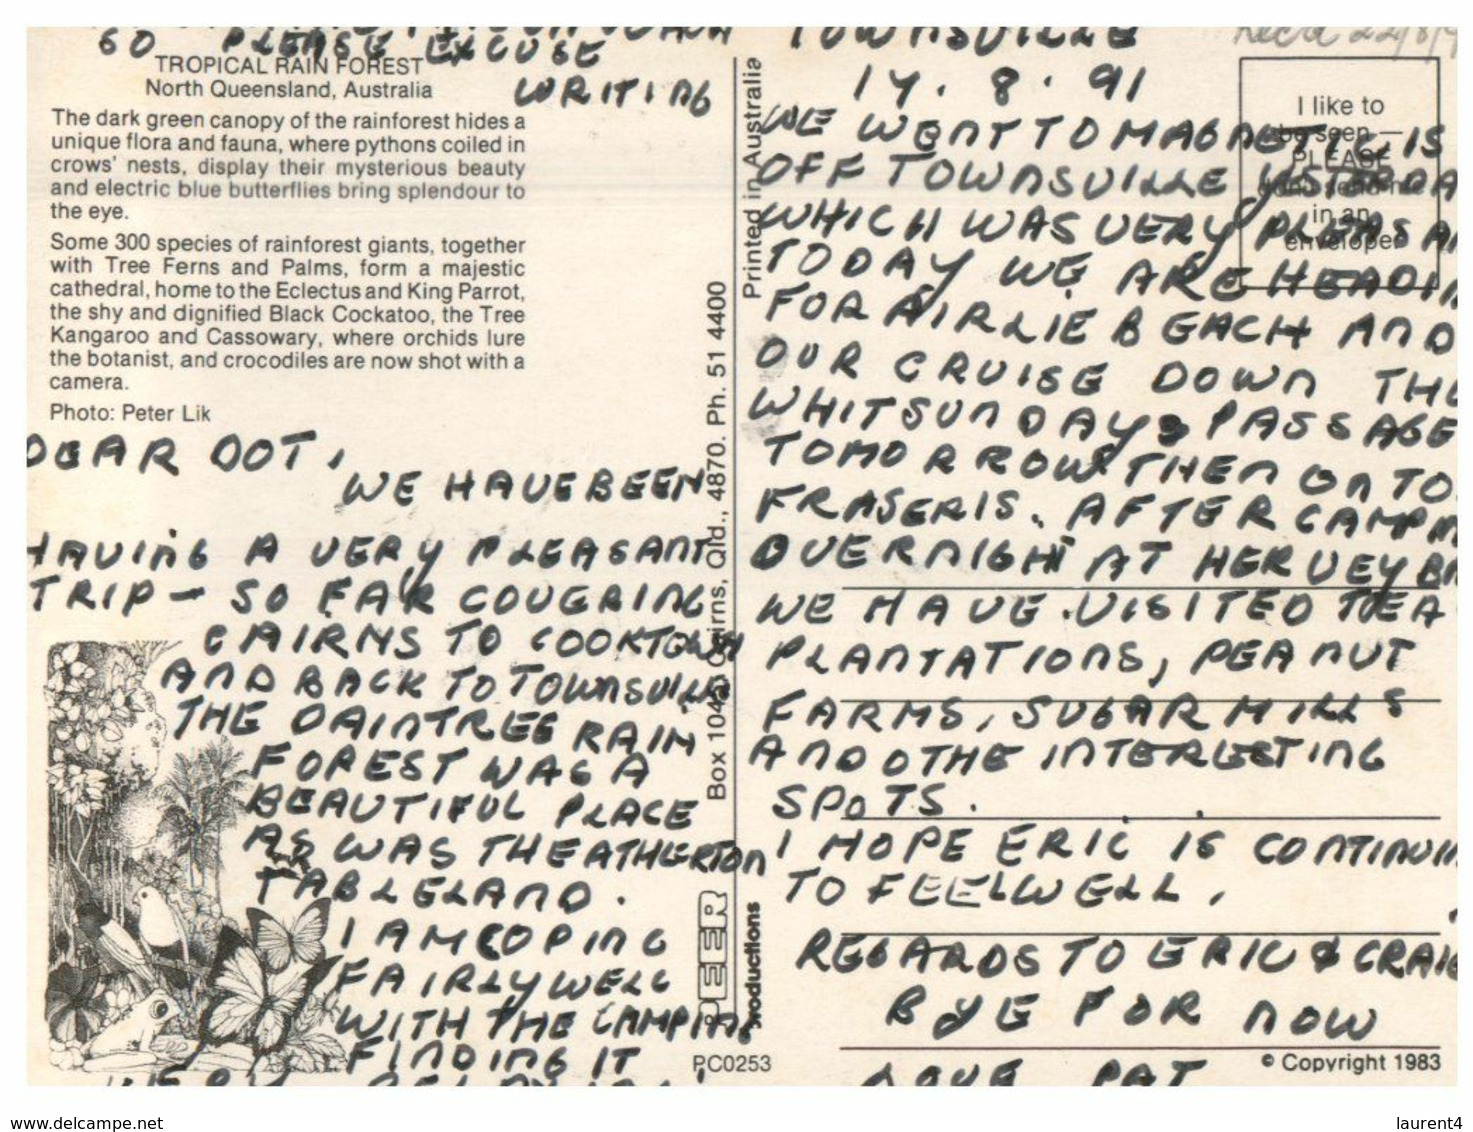 SO PLEASE EXCUSE
WRITING
TROPICAL RAIN FOREST
North Queensland, Australia
The dark green canopy of the rainforest hides a
unique flora and fauna, where pythons coiled in
crows' nests, display their mysterious beauty
and electric blue butterflies bring splendour to
the eye.
Some 300 species of rainforest giants, together
with Tree Ferns and Palms, form a majestic
cathedral, home to the Eclectus and King Parrot,
the shy and dignified Black Cockatoo, the Tree
Kangaroo and Cassowary, where orchids lure
the botanist, and crocodiles are now shot with a
camera.
Photo: Peter Lik
DEAR DOT,
WE HAVE BEEN
HAVING A VERY PLEASANT
TRIP - SO FAR COVERING
CAIRNS TO COOKTOWN
AND BACK TO TOWNSVILLE
THE DAINTREE RAIN
FOREST WAS A
BEAUTIFUL PLACE
AS WAS THE ATHERTON
TABLELAND.
I AM COPING
FAIRLY WELL
WITH THE CAMPING
FINDING IT
VERY
PEER
productions
Box 1040 Cairns, Qld., 4870. Ph. 51 4400
Printed in Australia
PC0253
TOWNSVILLE
14.8.91
Recd 22/8/9
I like to
be seen —
PLEASE
don't send me
in an
envelope
WE WENT TO MAGNETIC IS
OFF TOWNSVILLE YESTERDA
WHICH WAS VERY PLEASAN
TODAY WE ARE HEADIN
FOR AIRLIE BEACH AND
OUR CRUISE DOWN THE
WHITSUNDAYS PASSAGE
TOMORROW THEN ON TO
FRASER IS. AFTER CAMPIN
OVERNIGHT AT HERVEY BA
WE HAVE VISITED TEA
PLANTATIONS, PEANUT
FARMS, SUGAR MILLS
AND OTHE INTERESTING
SPOTS.
I HOPE ERIC IS CONTINUIN
TO FEEL WELL,
REGARDS TO ERIC & CRAIG
BYE FOR NOW
LOVE PAT
© Copyright 1983
www.delcampe.net
laurent4